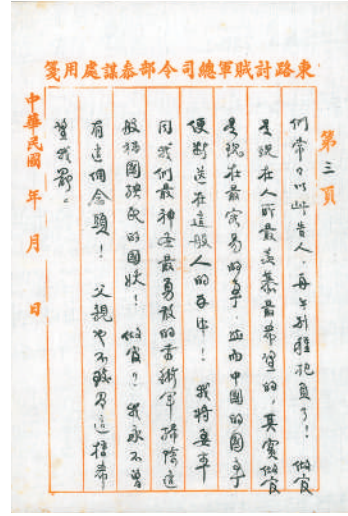 東路討賊軍總司令部叅謀處用箋
第三頁
們常々以此告人,再不別種抱負了! 做官
是現在人所最羨慕最希望的,其實做官
是現在最容易的事,而中國的國事
便斷送在這般人的手中! 我將要率
同我們最神圣最勇敢的術軍掃除這
般禍國殃民的國妖! 做官?我永不曾
有這個念頭! 父親也不致有這種希
望我罷。
中華民國 年 月 日